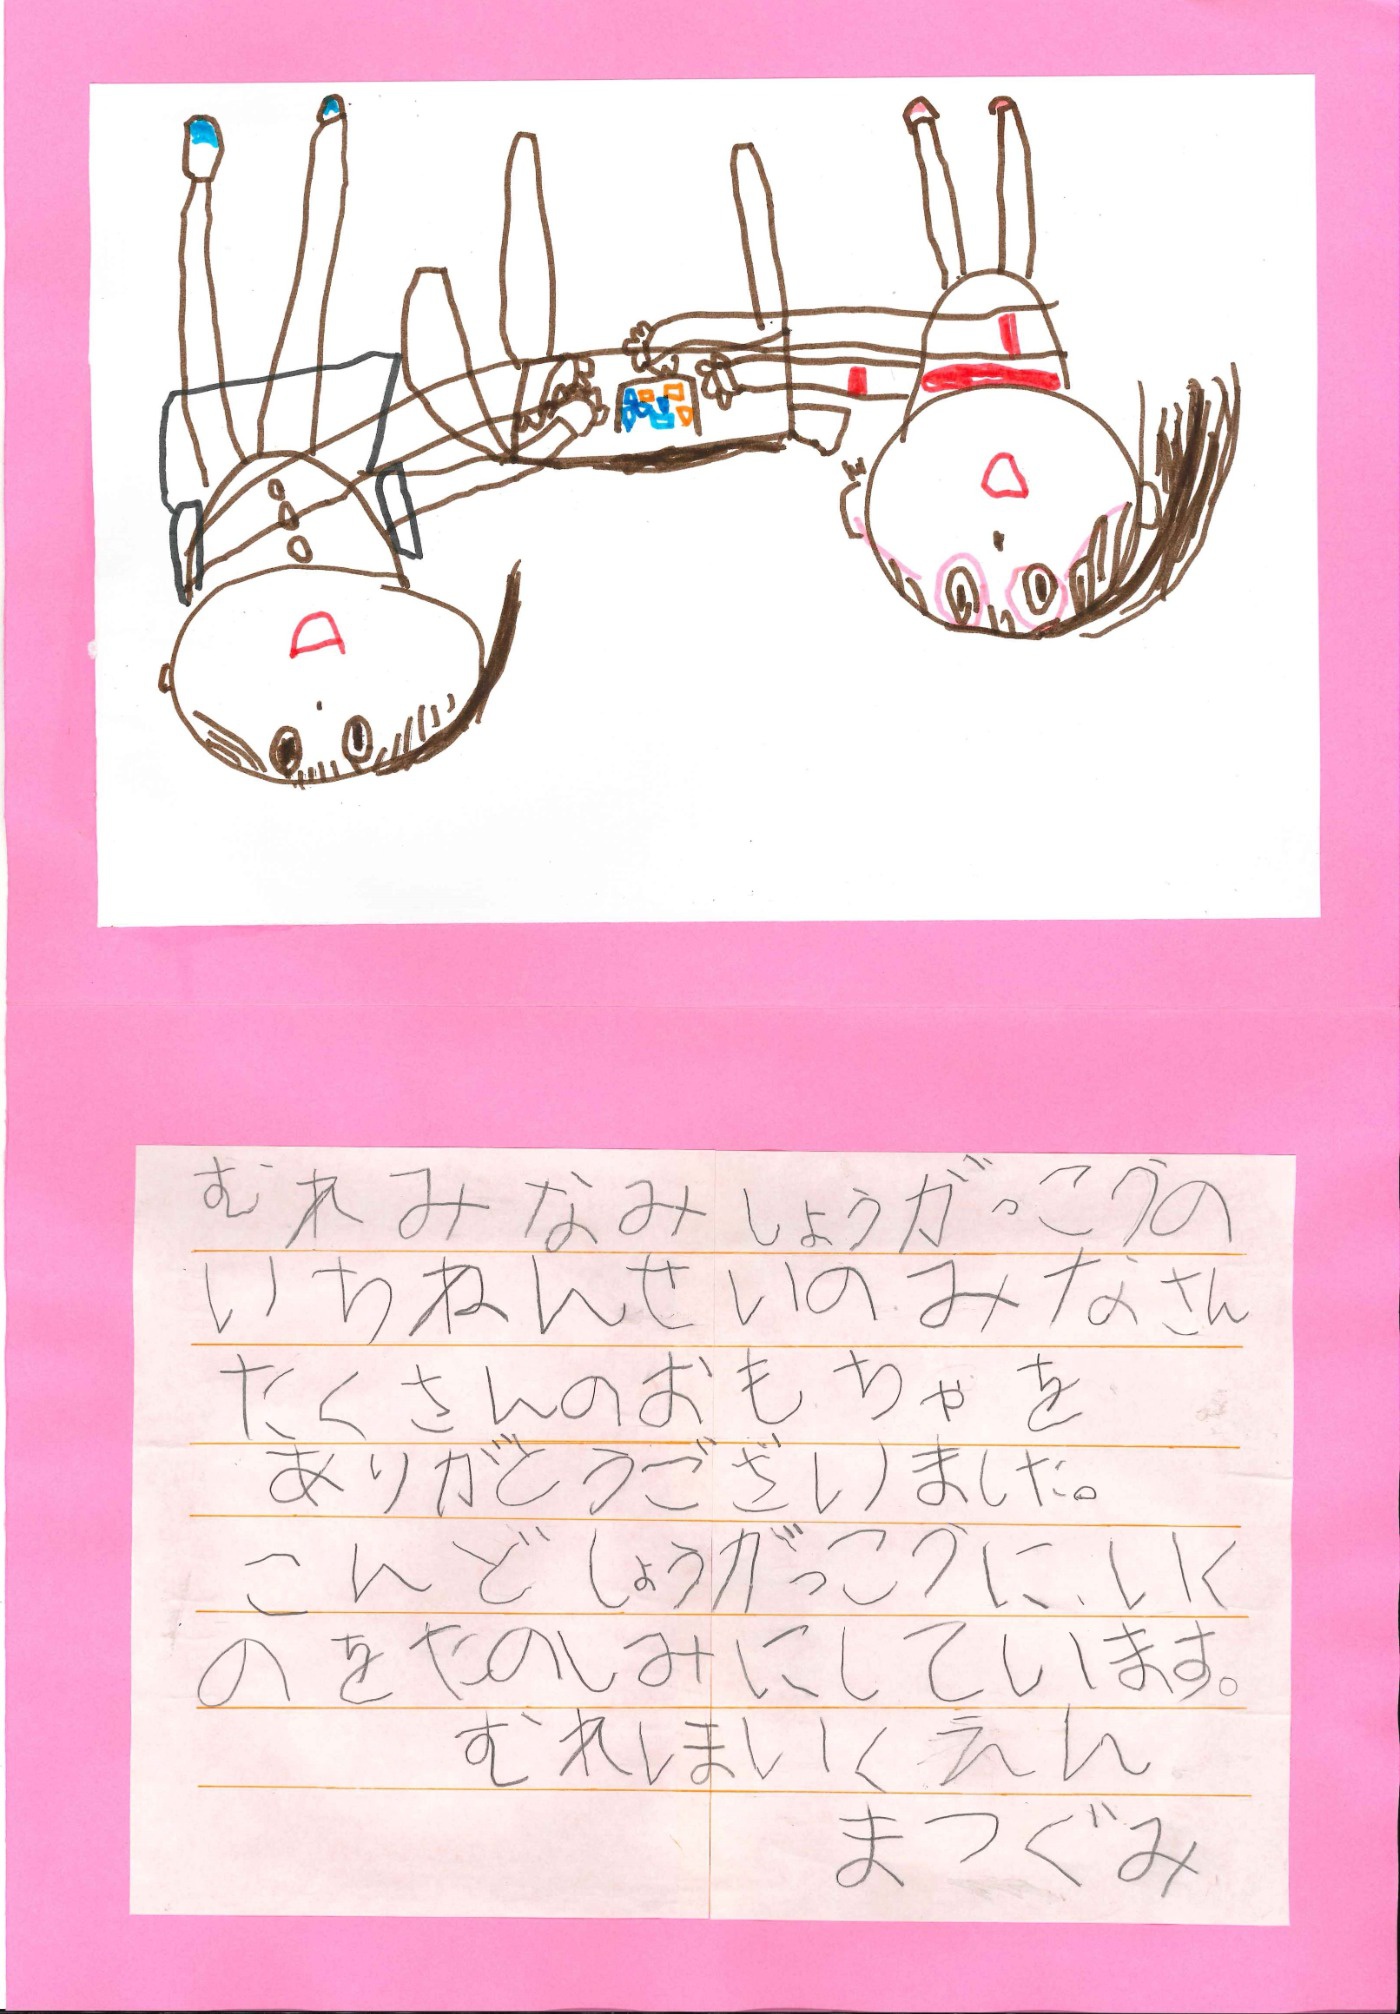 むれみなみしょうがっこうの
いちねんせいのみなさん
たくさんのおもちゃを
ありがとうございました。
こんどしょうがっこうに、いく
のをたのしみにしています。
むれほいくえん
まつぐみ